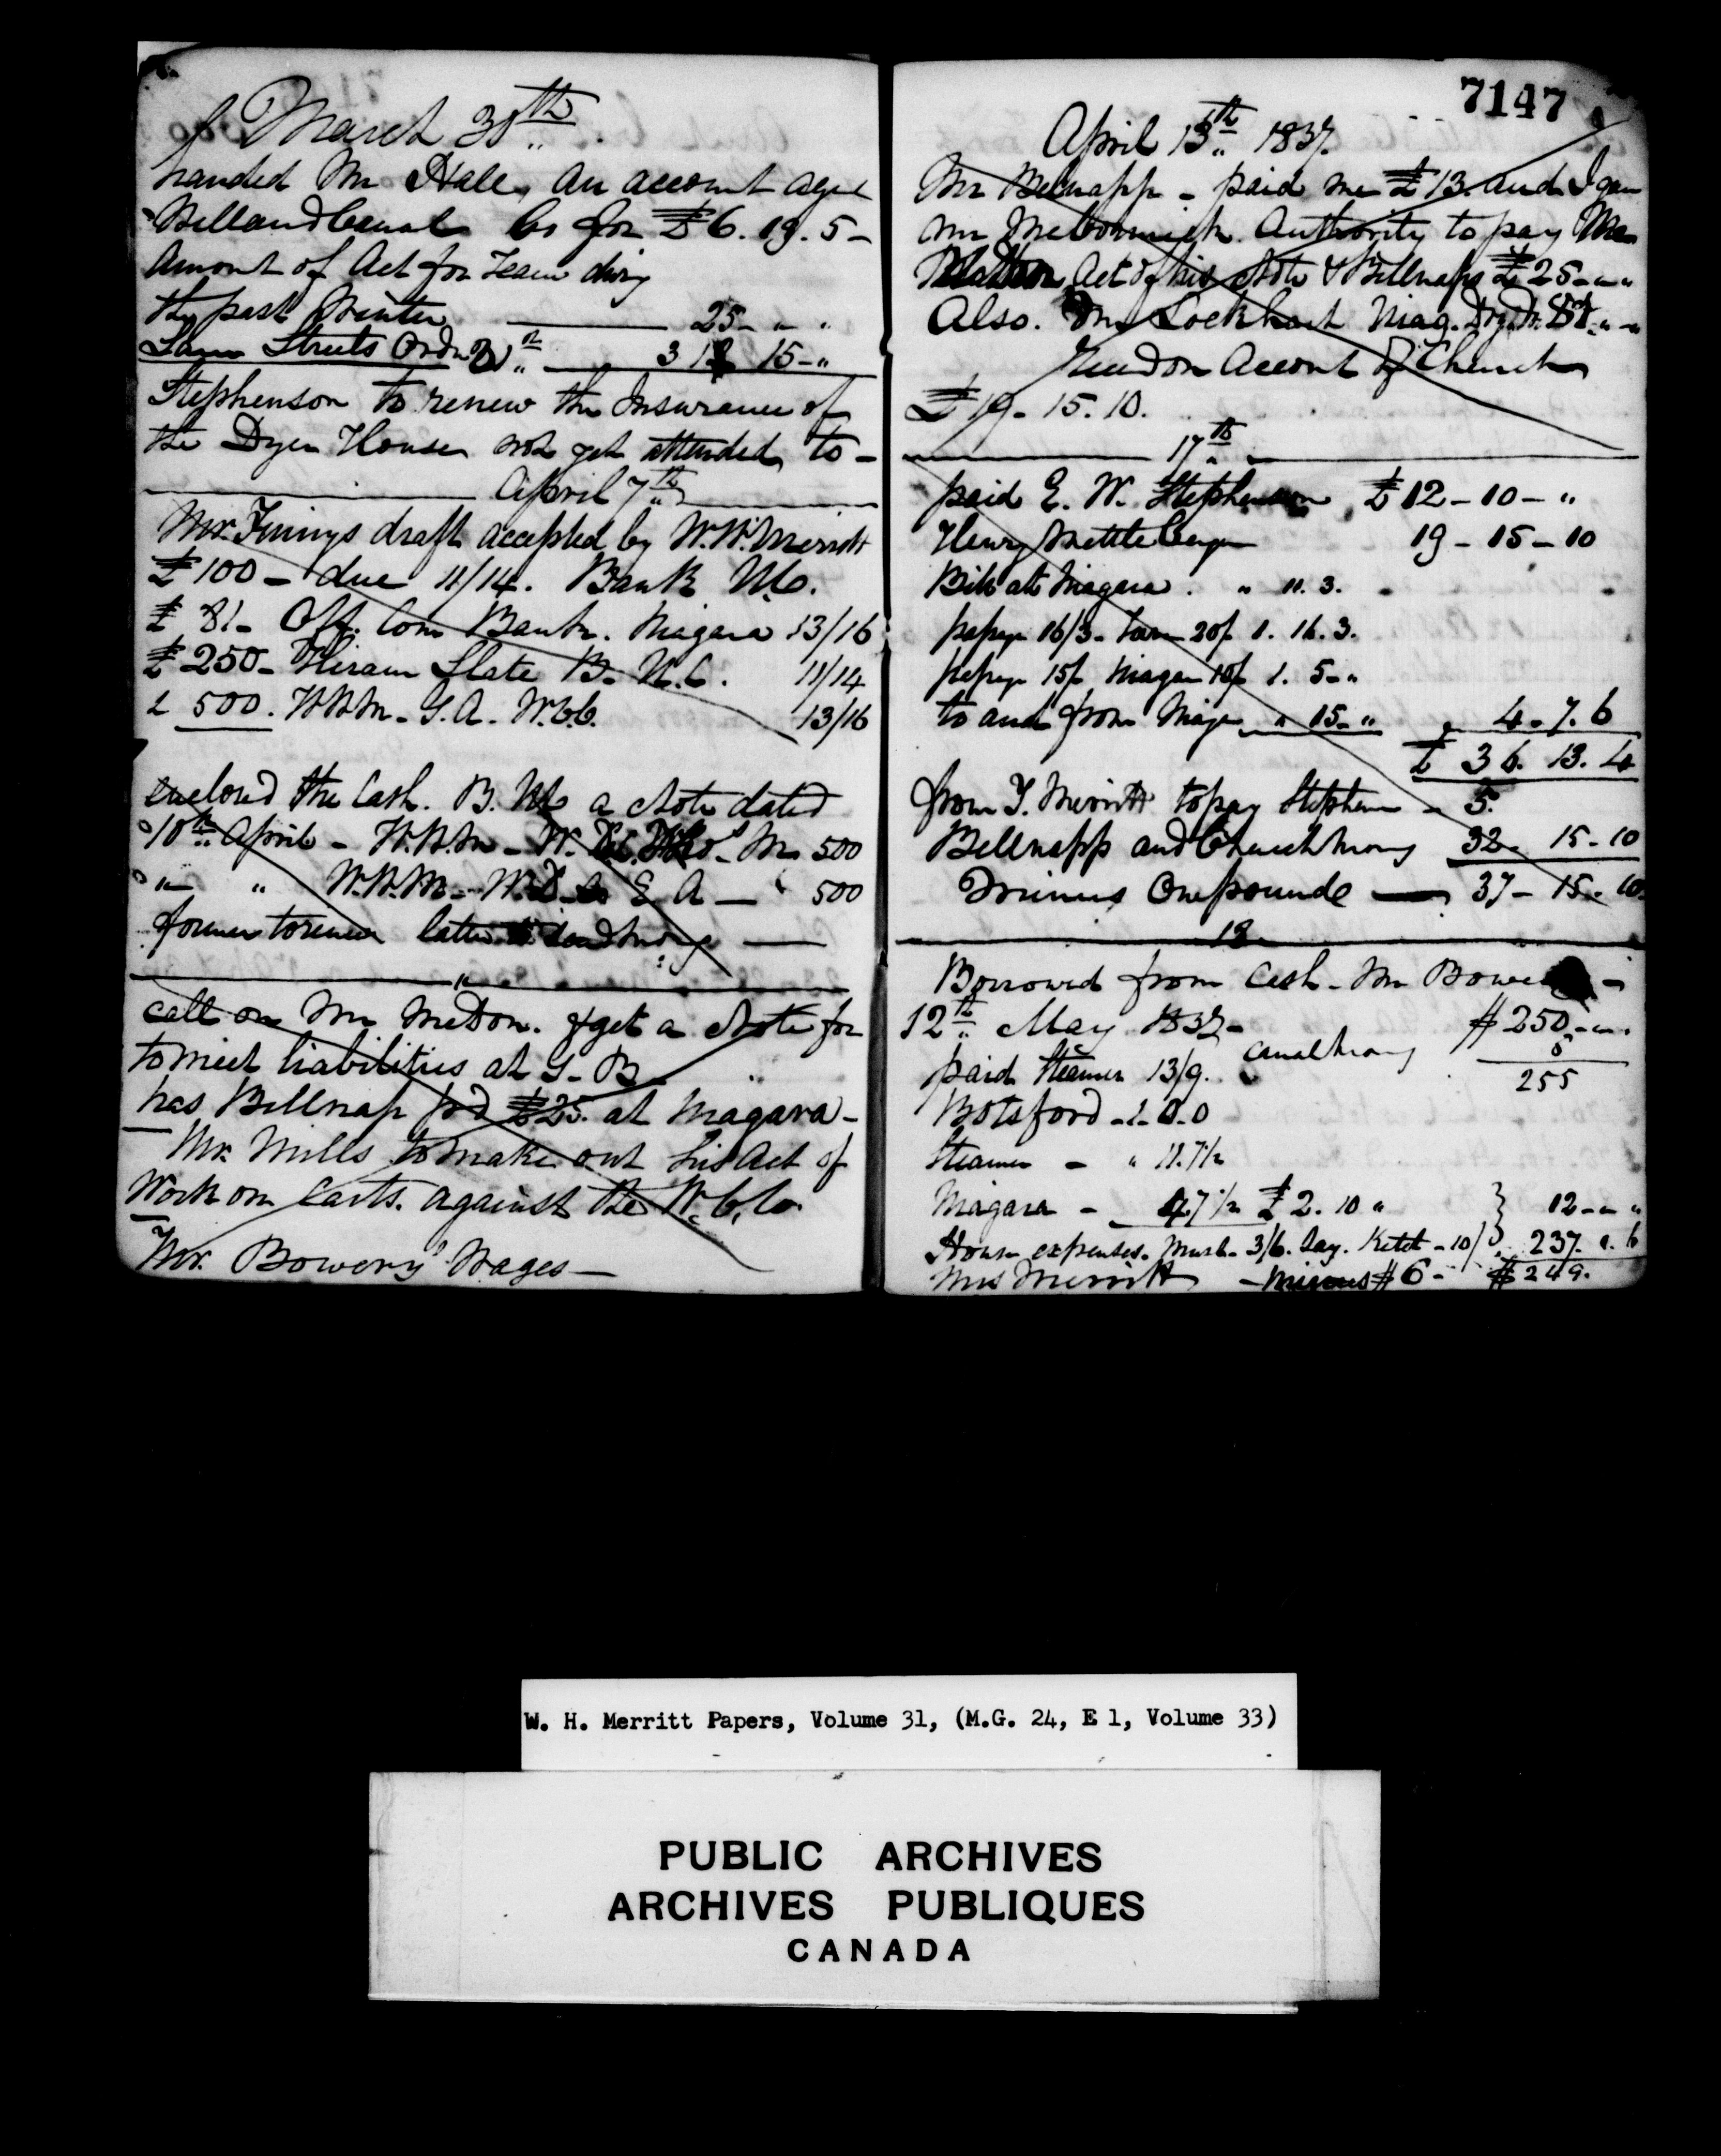 March 30th
handed Mr Hall, An account agst
Welland Canal Co for £6. 19. 5 -
Amount of Act for Team
the past Winter 25 - " - "
Streets Order 15 - "
Stephenson to renew the Insurance of
the Dyer House not yet attended to -
April 7th
Mr. draft accepted by W.H. Merritt
£ 100 - due 11/14. Bank U.C.
£ 81 - Com Bank. Niagara 13/16
£ 250 - Hiram Slate B. U.C. 11/14
£ 500. W.H.M. - G.A. - W.C.C. 13/16
enclosed the Cash. B. U.C a Note dated
10th April - W.H.M - W. 500
" " W.H.M - 500
former to renew latter
"
call on Mr & get a Note for
to meet liabilities at G. B
has Bellnap pd £25. at Niagara -
Mr. Mills to make out his Act of
Work on Carts. against the W.C.Co
Mr. Bowery's Wages -
7147
April 13th 1837.
Mr Belnapp - paid me £13. and I gave
Mr McCormick Authority to pay
Act of his Note & Bellnaps £25 - " - "
Also. Mr Lockhart Niag.
Account of Church
£19 - 15. 10.
17th
paid E. W. Stephenson £12 - 10 - "
Henry Mettleberger 19 - 15 - 10
Bill at Niagara. " 11. 3.
16/3 - 20/ 1. 16. 3.
15/ Niagara 10/ 1. 5 - "
to and from Niagara " 15 - " 4 - 7. 6
£ 36. 13. 4
from T. Merritt to pay Stephen - 5.
Bellnapp and Church money 32 - 15 - 10
Minus One pound 37 - 15 - 10
18
Borrowed from Cash. Mr
12th May 1837 - $ 250 - " -
paid Steamer 13/9. canal money 5
255
Botsford - 1 - 0. 0
Steamer - " 11. 7½
Niagara - 4. 7½ £ 2. 10 " 12 - " "
House expenses. 3/6. 10/ 237. 6
Mrs Merritt - minus $ 6 - $ 249.
W. H. Merritt Papers, Volume 31, (M.G. 24, E 1, Volume 33)
PUBLIC ARCHIVES
ARCHIVES PUBLIQUES
CANADA